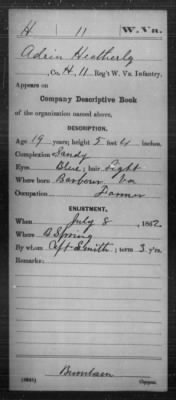 H 11 W. Va.
Adrin Heatherly
, Co. H, 11 Reg't W. Va. Infantry.
Appears on
Company Descriptive Book
of the organization named above.
DESCRIPTION.
Age 19 years; height 5 feet 4 inches.
Complexion Sandy
Eyes Blue; hair Light
Where born Barbour Va
Occupation Farmer
ENLISTMENT.
When July 8, 1862.
Where B Spring
By whom Capt Smith; term 3 y'rs.
Remarks:
Copyist.